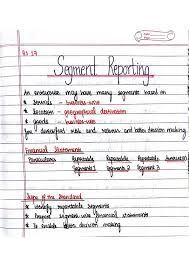 AS 17
Segment Reporting
An enterprise may have many segments based on
* Services - business-wise
* Location - geographical destination
* Goods - business-wise
for diversified risk and returns and both decision making
Financial Statements
Particulars Reportable Reportable Reportable
Segment 1 Segment 2 Segment 3
of the Standard
* Identify reportable segments
* Report segment-wise financial statements
* To enable decision making